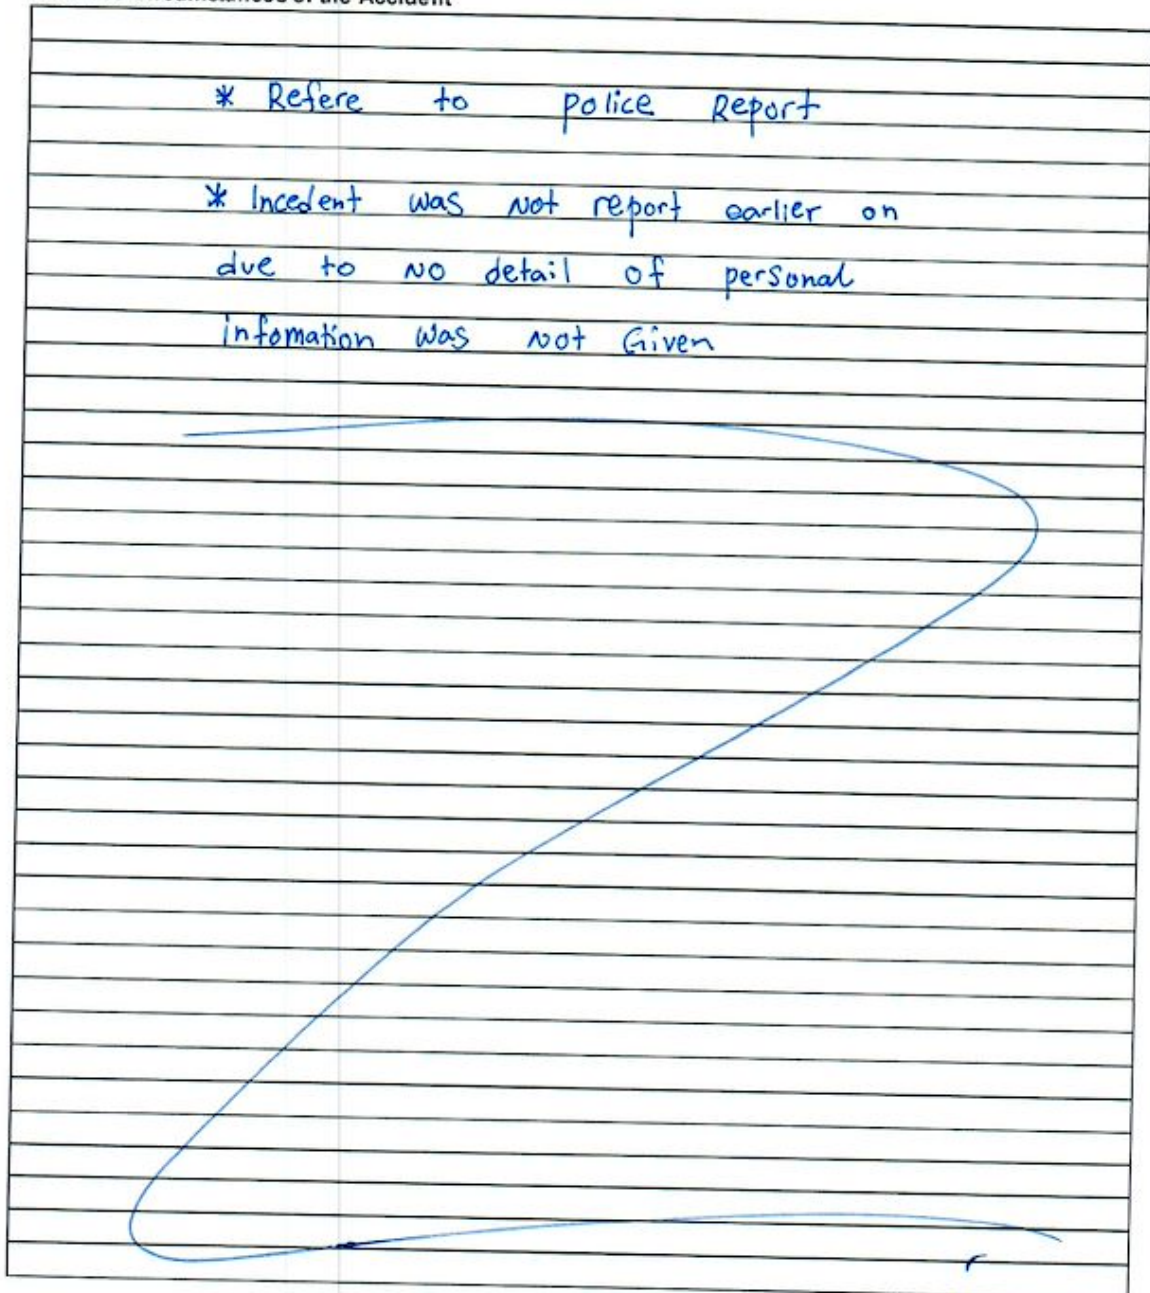 of the Accident
* Refere to police Report
* Incedent was not report earlier on
due to no detail of personal
infomation was not Given